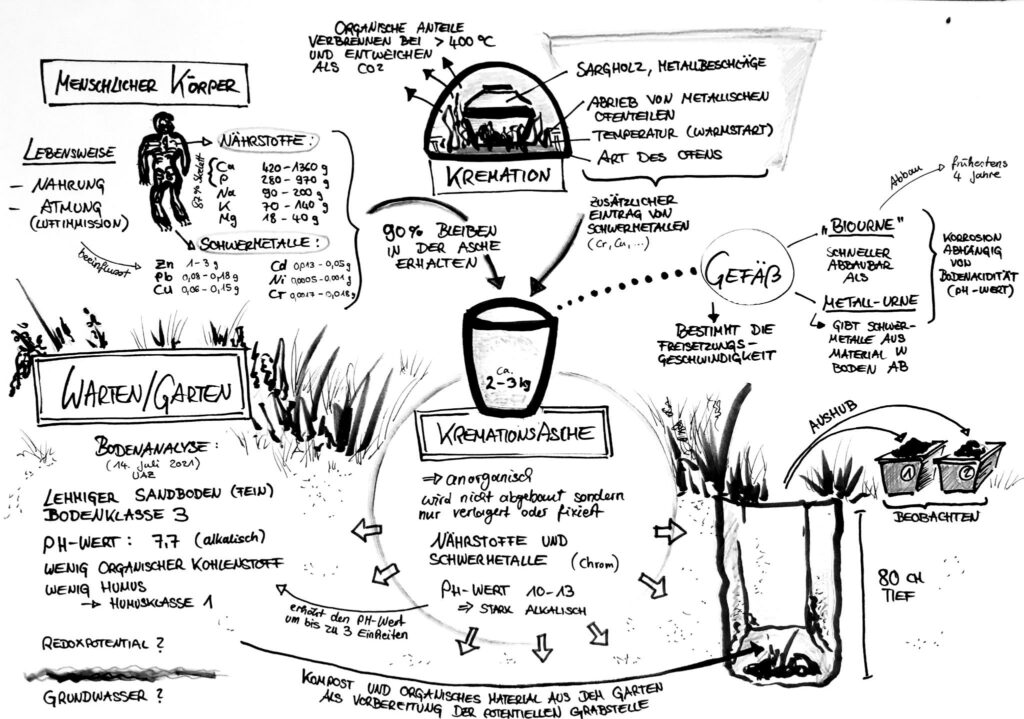 MENSCHLICHER KÖRPER
LEBENSWEISE
– NAHRUNG
– ATMUNG
(LUFTIMMISSION)
beeinflusst
NÄHRSTOFFE:
87% Skelett
Ca 420–1360 g
P 280–970 g
Na 90–200 g
K 70–140 g
Mg 18–40 g
SCHWERMETALLE:
Zn 1–3 g
Pb 0,08–0,18 g
Cu 0,06–0,15 g
Cd 0,013–0,05 g
Ni 0,0005–0,001 g
Cr 0,0017–0,018 g
ORGANISCHE ANTEILE
VERBRENNEN BEI > 400 °C
UND ENTWEICHEN
ALS CO2
KREMATION
SARGHOLZ, METALLBESCHLÄGE
ABRIEB VON METALLISCHEN
OFENTEILEN
TEMPERATUR (WARMSTART)
ART DES OFENS
ZUSÄTZLICHER
EINTRAG VON
SCHWERMETALLEN
(Cr, Cu, ...)
90% BLEIBEN
IN DER ASCHE
ERHALTEN
GEFÄẞ
„BIOURNE"
SCHNELLER
ABBAUBAR
ALS
METALL-URNE
GIBT SCHWER-
METALLE AUS
MATERIAL IN
BODEN AB
Abbau
frühestens
4 Jahre
KORROSION
ABHÄNGIG
VON
BODENACIDITÄT
(PH-WERT)
BESTIMMT DIE
FREISETZUNGS-
GESCHWINDIGKEIT
ca.
2–3 kg
KREMATIONSASCHE
⇒ anorganisch
wird nicht abgebaut sondern
nur verlagert oder fixiert
NÄHRSTOFFE UND
SCHWERMETALLE (Chrom)
PH-WERT 10-13
⇒ STARK ALKALISCH
erhöht den PH-Wert
um bis zu 3 Einheiten
WARTEN/GARTEN
BODENANALYSE:
(14. Juli 2021)
UAZ
LEHMIGER SANDBODEN (FEIN)
BODENKLASSE 3
PH-WERT: 7,7 (alkalisch)
WENIG ORGANISCHER KOHLENSTOFF
WENIG HUMUS
→ HUMUSKLASSE 1
REDOXPOTENTIAL?
GRUNDWASSER?
KOMPOST UND ORGANISCHES MATERIAL AUS DEM GARTEN
ALS VORBEREITUNG DER POTENTIELLEN GRABSTELLE
AUSHUB
1
2
BEOBACHTEN
80 CM
TIEF